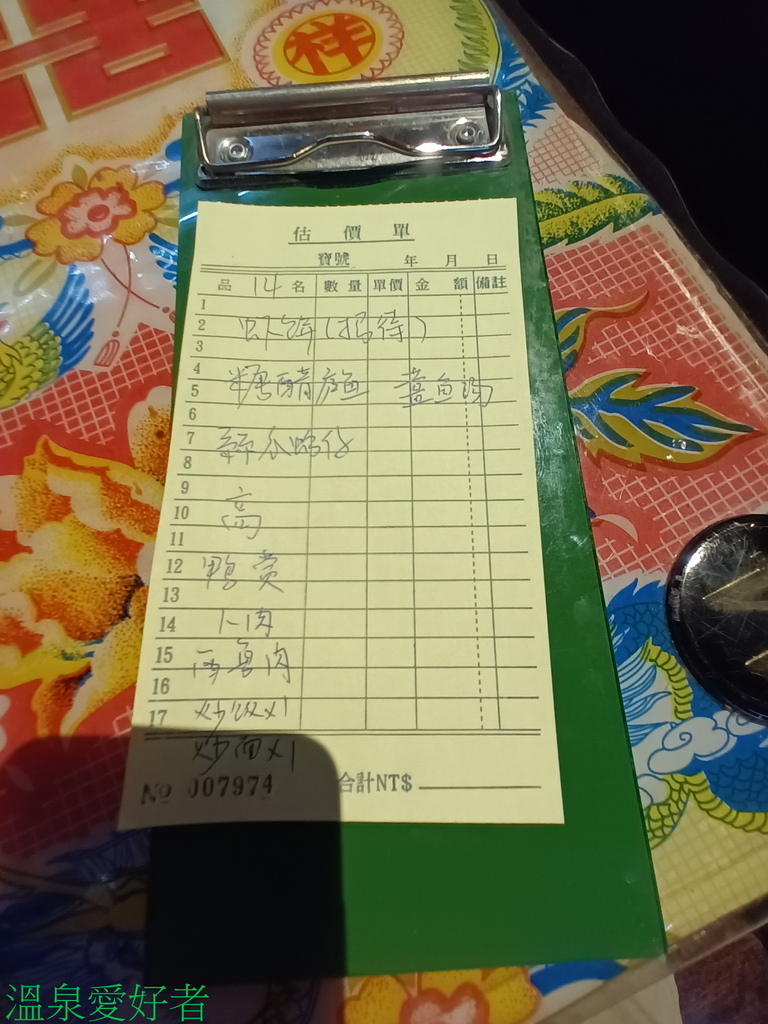 祥
估價單
寶號 年 月 日
品 14 名 數量 單價 金額 備註
1
2 虾餅(招待)
3
4
5 糖醋魚 薑魚湯
6
7
8
9
10 高
11
12 鴨賞
13
14 卜肉
15 肉
16
17 炒饭x1
炒面x1
№ 007974 合計NT$
溫泉愛好者